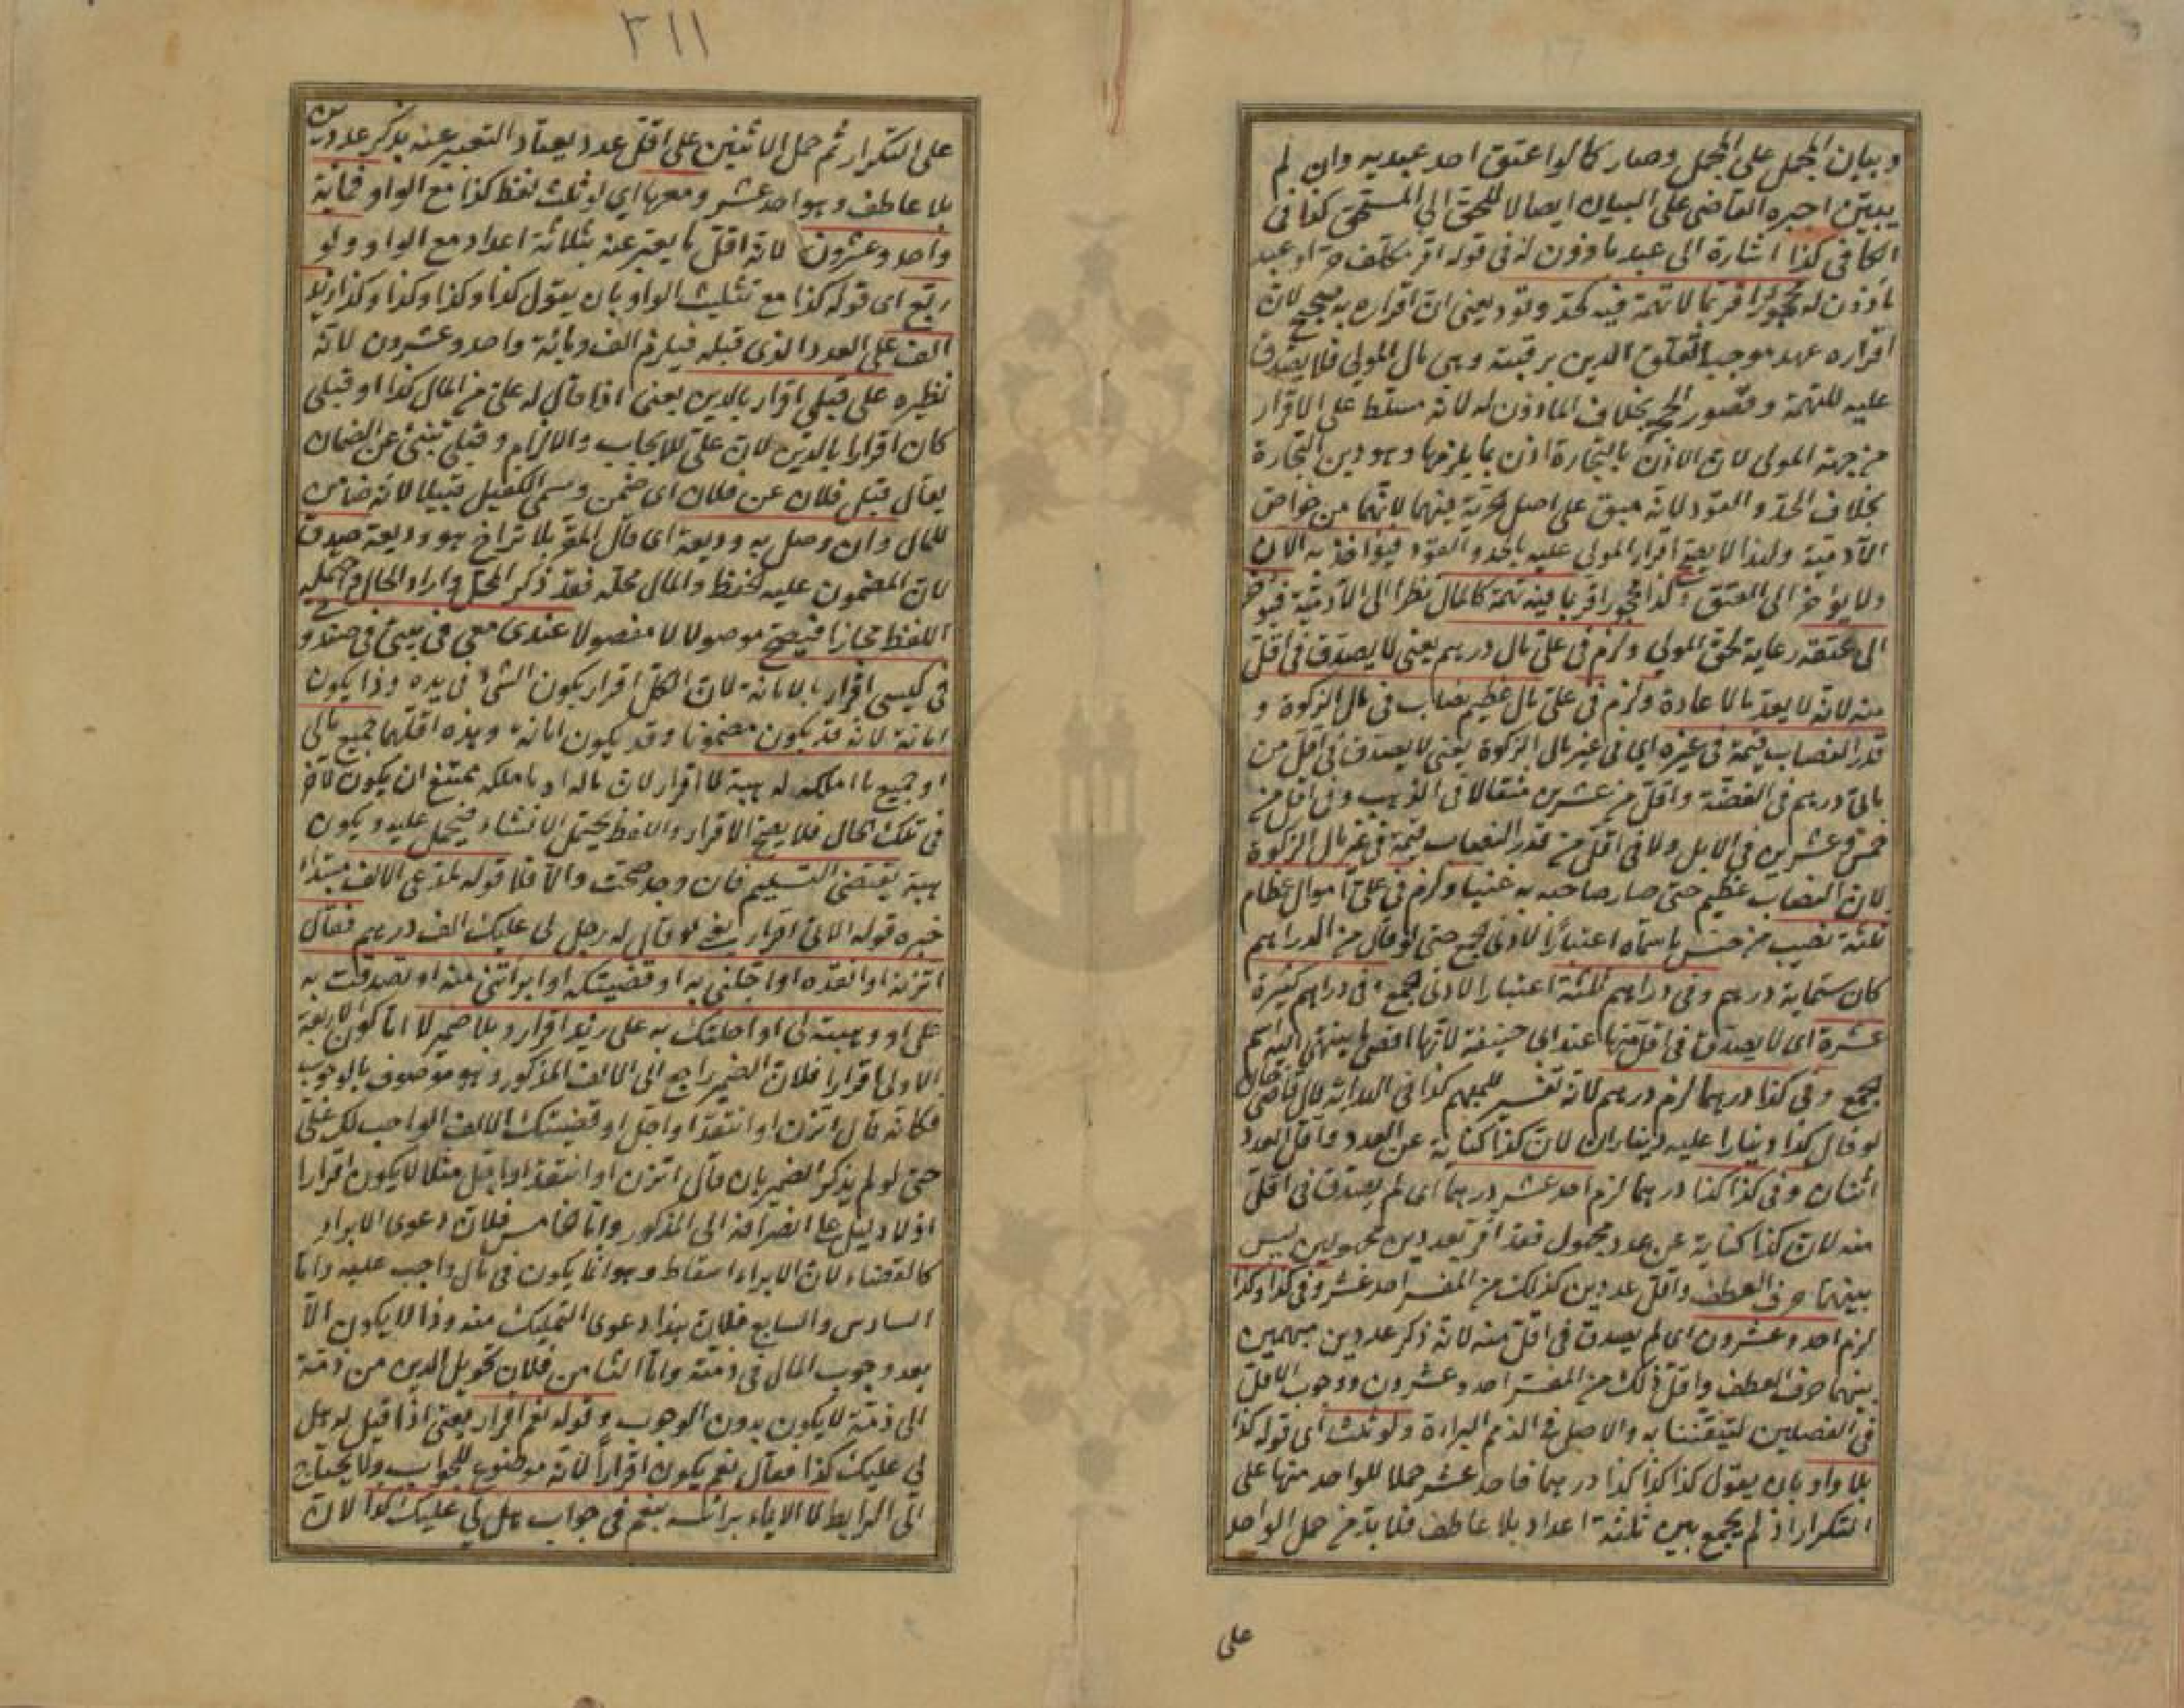 وبيان المجمل على المجمل وصار كما لو اعتق احد عبديه وان لم
يبين اجبره القاضى على البيان ايصالا للحق الى المستحق كذا فى
الكافى كذا اشارة الى عبد مأذون له فى قوله اقر مكلف حر او عبد
مأذون له محجور اقر بما لا تهمة فيه كحد وقود يعنى ان اقراره به صحيح لان
اقراره عهد موجبا لتعلق الدين برقبته وهى مال المولى فلا يصدق
عليه للتهمة وقصور الحجة بخلاف المأذون له لانه مسلط على الاقرار
من جهة المولى لان الاذن بالتجارة اذن بما يلزمها وهو دين التجارة
بخلاف الحد والقود لانه مبقى على اصل الحرية فيهما لانهما من خواص
الآدمية ولهذا لا يصح اقرار المولى عليه بالحد والقود فيؤاخذ به الآن
ولا يؤخر الى العتق وكذا محجور اقر بما فيه تهمة كالمال نظرا الى الآدمية فيؤخر
الى عتقه رعاية لحق المولى ولزم فى على مال درهم يعنى لا يصدق فى اقل
منه لانه لا يعد مالا عادة ولزم فى على مال عظيم نصاب فى مال الزكوة و
قدر النصاب قيمة فى غيره اى فى غير مال الزكوة يعنى لا يصدق فى اقل من
مائتى درهم فى الفضة واقل من عشرين مثقالا فى الذهب وفى اقل من
خمس وعشرين فى الابل ولا فى اقل من قدر النصاب قيمة فى غير مال الزكوة
لان النصاب عظيم حتى صار صاحبه به غنيا ولزم فى على اموال عظام
ثلثة نصب من جنس ما سماه اعتبارا لادنى الجمع حتى لو قال من الدراهم
كان ستماية درهم وفى دراهم ثلثة اعتبارا لادنى الجمع وفى دراهم كثيرة
عشرة اى لا يصدق فى اقل منها عند ابى حنيفة لانها اقصى ما ينتهى اليه اسم
الجمع وفى كذا درهما لزم درهم لانه تفسير للمبهم كذا فى الهداية قال قاضى خان
لو قال كذا دينارا عليه ديناران لان كذا كناية عن العدد واقل العدد
اثنان وفى كذا كذا درهما لزم احد عشر درهما اى لم يصدق فى اقل
منه لان كذا كناية عن عدد مجهول فقد اقر بعددين مجهولين ليس
بينهما حرف العطف واقل عددين كذلك من المفسر احد عشر وفى كذا وكذا
لزم احد وعشرون اى لم يصدق فى اقل منه لانه ذكر عددين مبهمين
بينهما حرف العطف واقل ذلك من المفسر احد وعشرون ووجوب الاقل
فى الفصلين لتيقننا به والاصل فى الذمم البراءة ولو ثلث اى قوله كذا
بلا واو بان يقول كذا كذا كذا درهما فاحد عشر حملا للواحد منها على
التكرار اذ لم يجمع بين ثلثة اعداد بلا عاطف فلا بد من حمل الواحد
على
٣١١
على التكرار ثم حمل الاثنين على اقل عدد يعتاد التعبير عنه بذكر عددين
بلا عاطف وهو احد عشر ومعها اى لو ثلث لفظ كذا مع الواو فمائة
واحد وعشرون لانه اقل ما يعبر عنه بثلاثة اعداد مع الواو ولو
ربع اى قوله كذا مع تثليث الواو بان يقول كذا وكذا وكذا وكذا زيد
الف على العدد الذى قبله فيلزم الف ومائة واحد وعشرون لانه
نظيره على قبلى اقرار بالدين يعنى اذا قال له على من المال كذا او قبلى
كان اقرارا بالدين لان على للايجاب والالزام وقبلى تنبئ عن الضمان
يقال قبل فلان عن فلان اى ضمن وسمى الكفيل قبيلا لانه ضامن
للمال وان وصل به وديعة اى قال المقر بلا تراخ هو وديعة صدق
لان المضمون عليه الحفظ والمال محله فقد ذكر المحل واراد الحال واحتمله
اللفظ مجازا فيصح موصولا لا مفصولا عندى معى فى بيتى فى صندوقى
فى كيسى اقرار بالامانة لان الكل اقرار بكون الشئ فى يده وذا يكون
امانة لانه قد يكون مضمونا وقد يكون امانة وهذه اقلهما جميع مالى
او جميع ما املكه له هبة لا اقرار لان ماله او ما ملكه يمتنع ان يكون لآخر
فى تلك الحال فلا يصح الاقرار واللفظ يحتمل الانشاء فيحمل عليه ويكون
هبة يقتضى التسليم فان وجد صحت والا فلا قوله لمدعى الالف مبتدأ
خبره قوله الآتى اقرار يعنى لو قال له رجل لى عليك الف درهم فقال
اتزنه او انتقده او اجلنى به او قضيتكه او ابرأتنى منه او تصدقت به
على او وهبته لى او احلتك به على زيد اقرار وبلا ضمير لا اما كون الاربعة
الاولى اقرارا فلان الضمير راجع الى الالف المذكور وهو موصوف بالوجوب
فكانه قال اتزن او انتقد او اجل او قضيتك الالف الواجب لك على
حتى لو لم يذكر الضمير بان قال اتزن او انتقد او اجل مثلا لا يكون اقرارا
اذ لا دليل على انصرافه الى المذكور واما الخامس فلان دعوى الابراء
كالقضاء لان الابراء اسقاط وهو انما يكون فى مال واجب عليه واما
السادس والسابع فلان هذا دعوى التمليك منه وذا لا يكون الا
بعد وجوب المال فى ذمته واما الثامن فلان تحويل الدين من ذمة
الى ذمة لا يكون بدون الوجوب وقوله نعم اقرار يعنى اذا قيل له هل
لى عليك كذا فقال نعم يكون اقرارا لانه موضوع للجواب ولا يحتاج
الى الرابط لا الايماء برأسه بنعم فى جواب هل لى عليك كذا لان